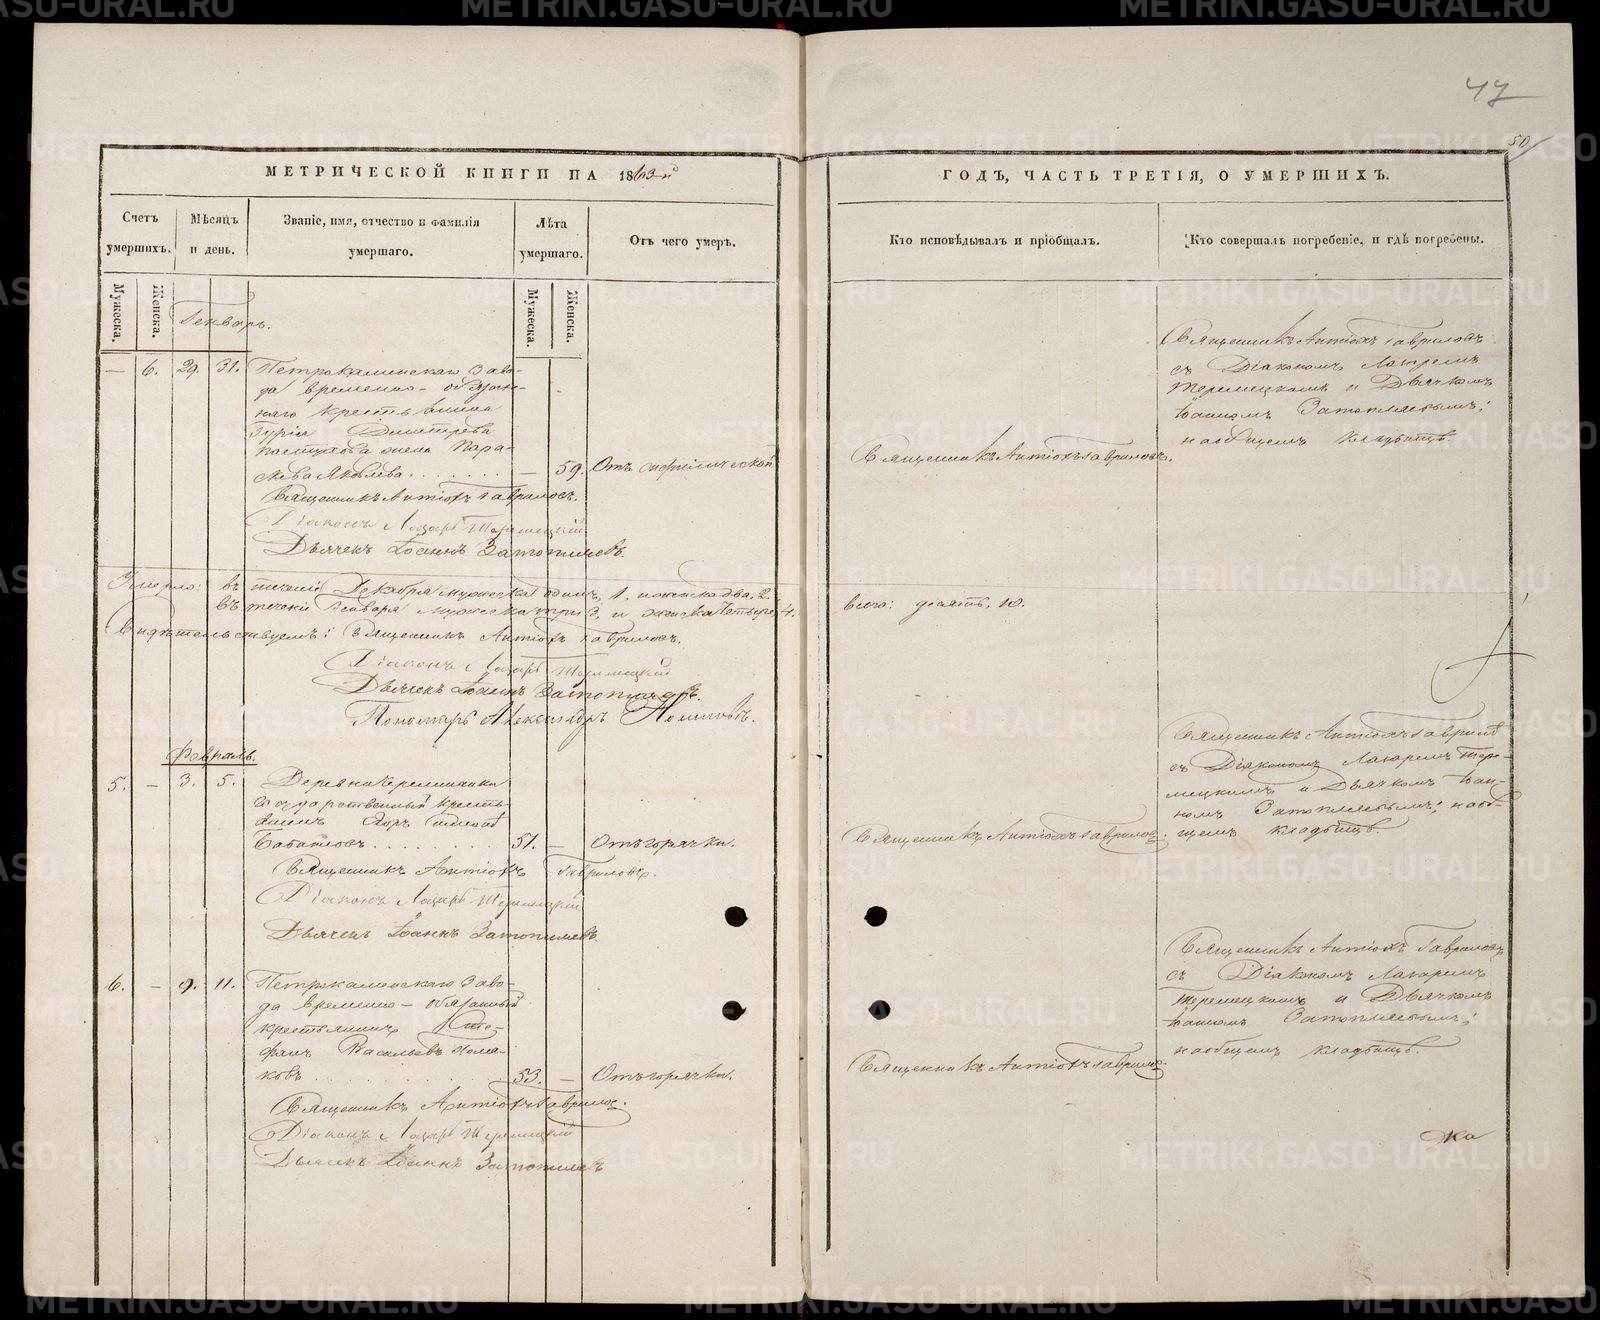 47
50
МЕТРИЧЕСКОЙ КНИГИ НА 1863й
ГОДЪ, ЧАСТЬ ТРЕТІЯ, О УМЕРШИХЪ.
Счетъ умершихъ.
Мѣсяцъ и день.
Званіе, имя, отчество и фамилія умершаго.
Лѣта умершаго.
Отъ чего умеръ.
Кто исповѣдывалъ и пріобщалъ.
Кто совершалъ погребеніе, и гдѣ погребены.
Мужеска.
Женска.
Мужеска.
Женска.
Генварь.
— 6. 29. 31. Петрокаменскаго заво-
да временно-обязан-
наго крестьянина
Гурія Димитріева
жена Пара-
скева Яковлева . . . — 59. Отъ сифилической.
Священникъ Антіохъ Гавриловъ.
Діаконъ Лазарь Теремецкій
Дьячекъ Іоаннъ Затопляевъ.
Священникъ Антіохъ Гавриловъ.
Священникъ Антіохъ Гавриловъ
съ Діакономъ Лазаремъ
Теремецкимъ и Дьячкомъ
Іоанномъ Затопляевымъ;
на общемъ кладбищѣ.
Умерло: въ теченіе Декабря мужеска одинъ, 1, женска два, 2
въ теченіе Генваря мужеска три 3, и женска четыре, 4. всего: десять, 10.
Свидѣтельствуемъ: Священникъ Антіохъ Гавриловъ.
Діаконъ Лазарь Теремецкій
Дьячекъ Іоаннъ Затопляевъ.
Пономарь Александръ
Февраль.
5. — 3. 5. Деревни Черемшанки
Государственный кресть-
янинъ Егоръ
. . . . . . 51. — Отъ горячки.
Священникъ Антіохъ Гавриловъ.
Діаконъ Лазарь Теремецкій
Дьячекъ Іоаннъ Затопляевъ
Священникъ Антіохъ Гавриловъ.
Священникъ Антіохъ Гавриловъ
съ Діакономъ Лазаремъ Тере-
мецкимъ и Дьячкомъ Іоан-
номъ Затопляевымъ; на об-
щемъ кладбищѣ.
6. — 9. 11. Петрокаменскаго заво-
да временно-обязанный
крестьянинъ Сте-
фанъ Васильевъ
. . . . . . 53. — Отъ горячки.
Священникъ Антіохъ Гавриловъ.
Діаконъ Лазарь Теремецкій
Дьячекъ Іоаннъ Затопляевъ
Священникъ Антіохъ Гавриловъ.
Священникъ Антіохъ Гавриловъ
съ Діакономъ Лазаремъ
Теремецкимъ и Дьячкомъ
Іоанномъ Затопляевымъ;
на общемъ кладбищѣ.
METRIKI.GASO-URAL.RU